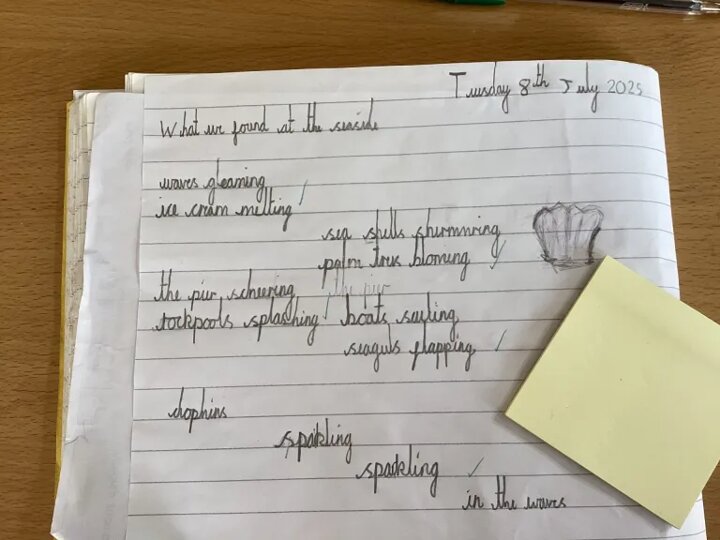 Tuesday 8th July 2025
What we found at the seaside
waves gleaming
ice cream melting
sea shells shurmmring
palm tres bloming
the pier scheering the pier
rockpools splashing boats sailing
seaguls flapping
dophins
sparkling
sparkling
in the waves